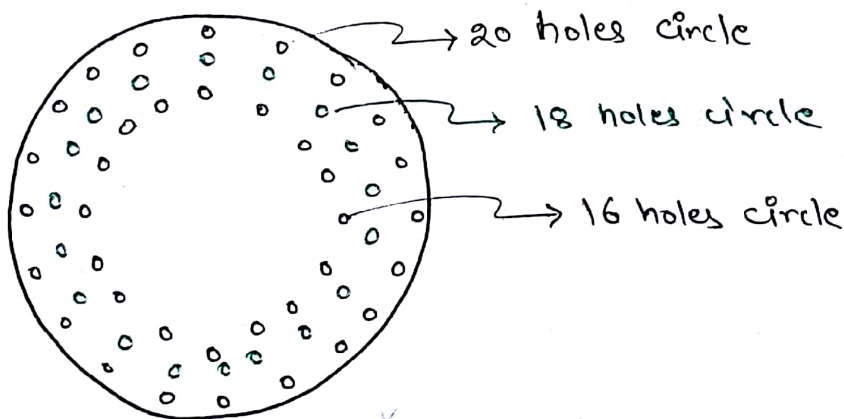 20 holes circle
18 holes circle
16 holes circle